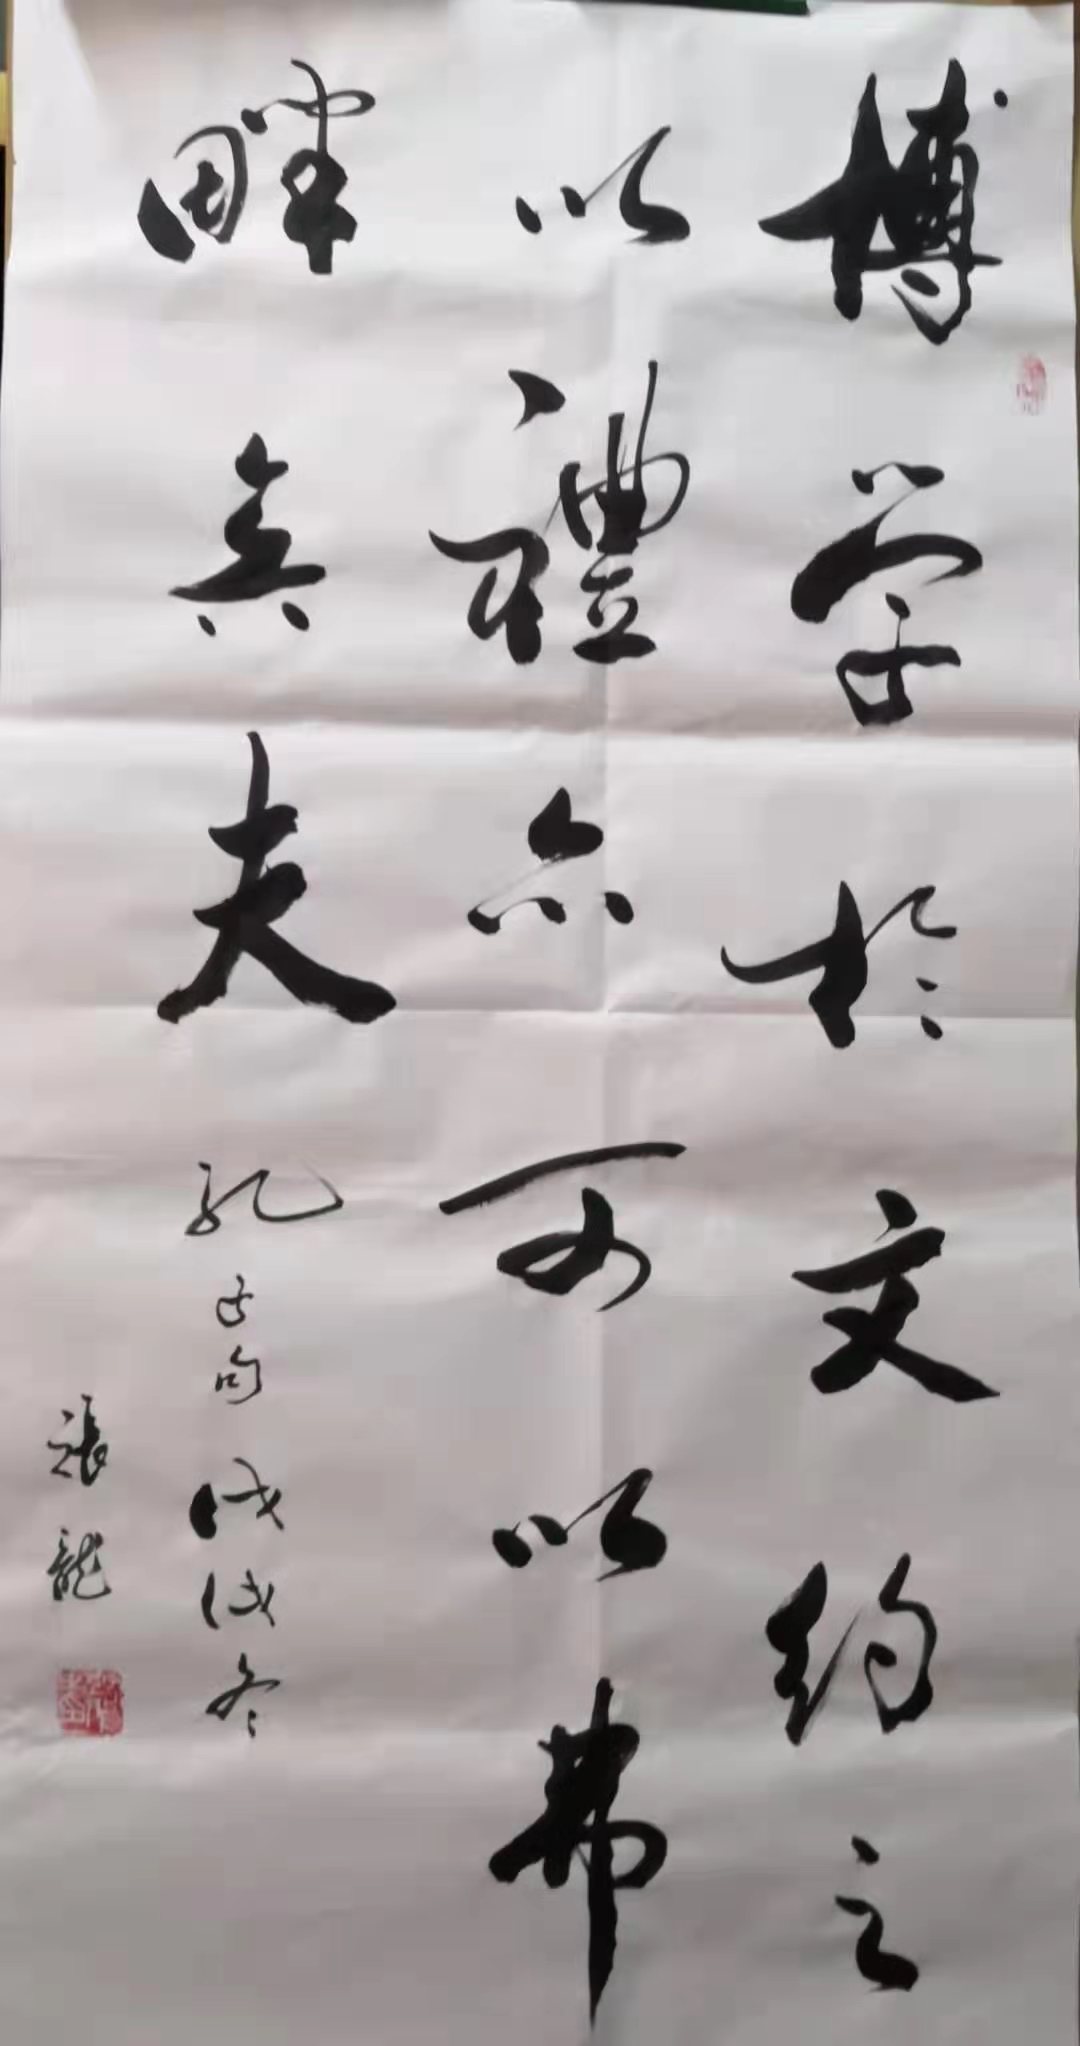 博学於文约之
以禮亦可以弗
畔矣夫 孔子句 戊戌冬
張龍